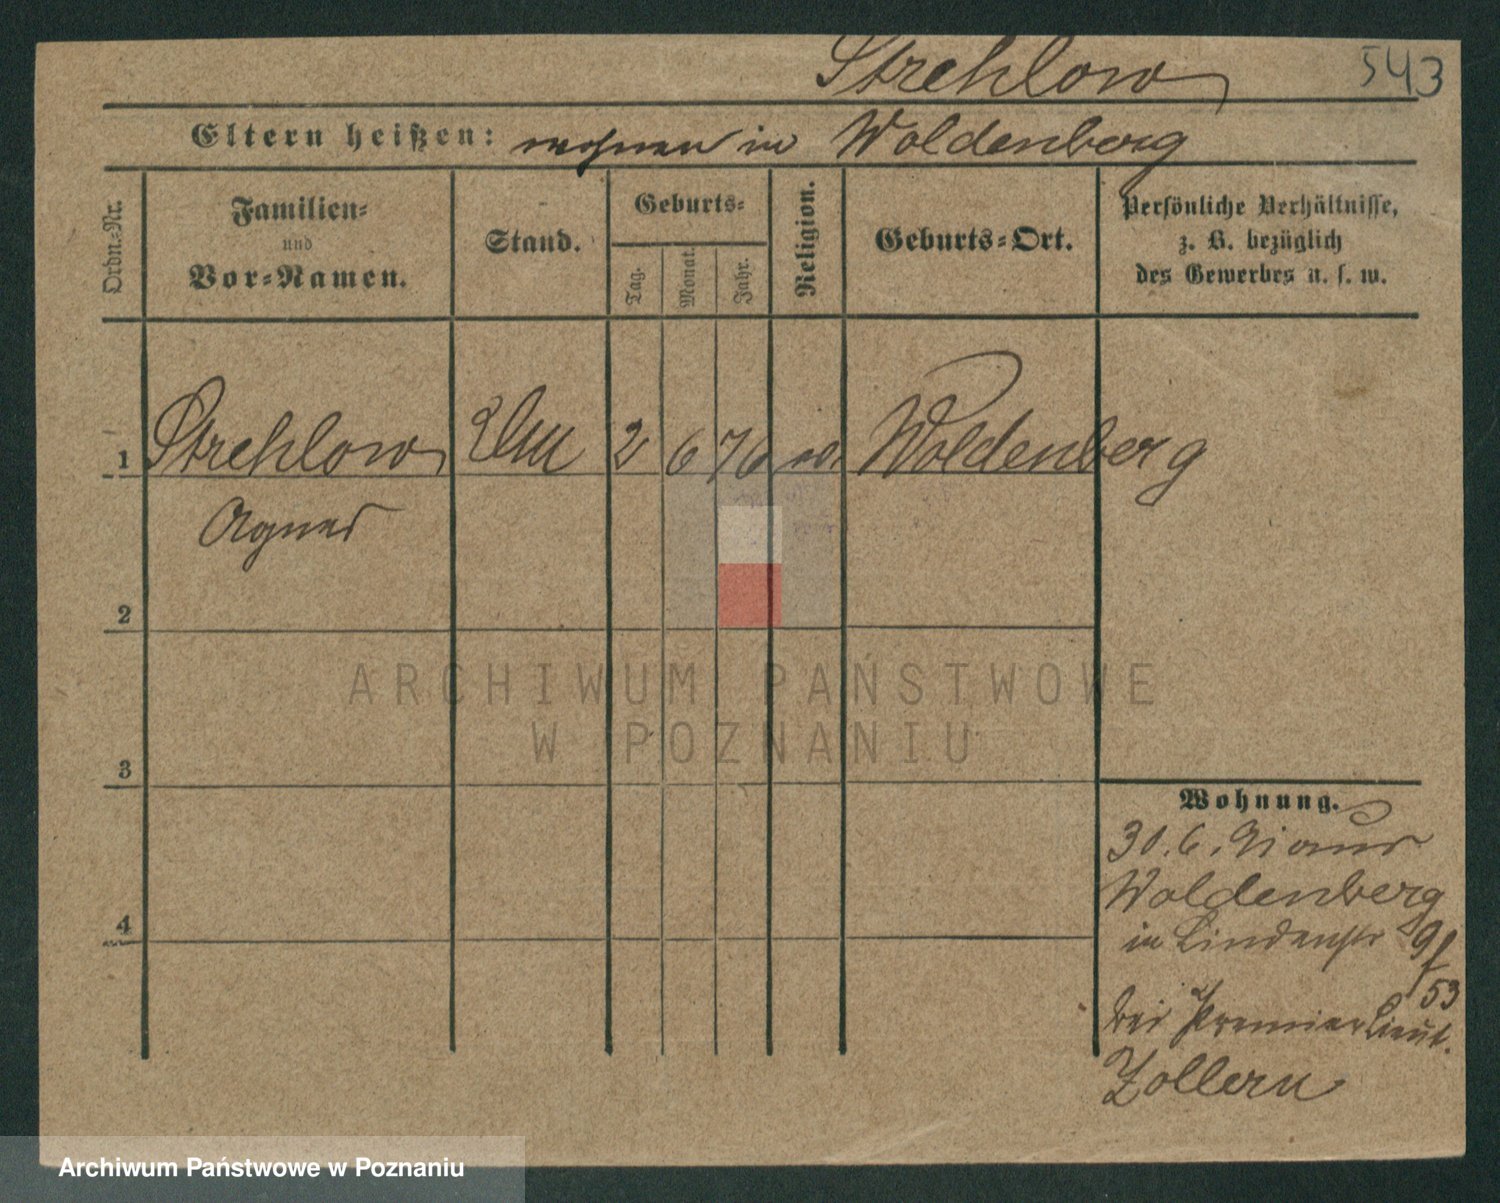 Strehlow 543
Eltern heißen: wohnen in Woldenberg
Ordn.-Nr.
Familien-
und
Vor-Namen.
Stand.
Geburts-
Tag.
Monat.
Jahr.
Religion.
Geburts-Ort.
Persönliche Verhältnisse,
z. B. bezüglich
des Gewerbes u. s. w.
1 Strehlow 2 6 76 Woldenberg
Agnes
2
3
4
ARCHIWUM PAŃSTWOWE
W POZNANIU
Wohnung.
30.6.91 aus
Woldenberg
in Lindenstr 9
53
bei Premier Lieut.
Zollern
Archiwum Państwowe w Poznaniu